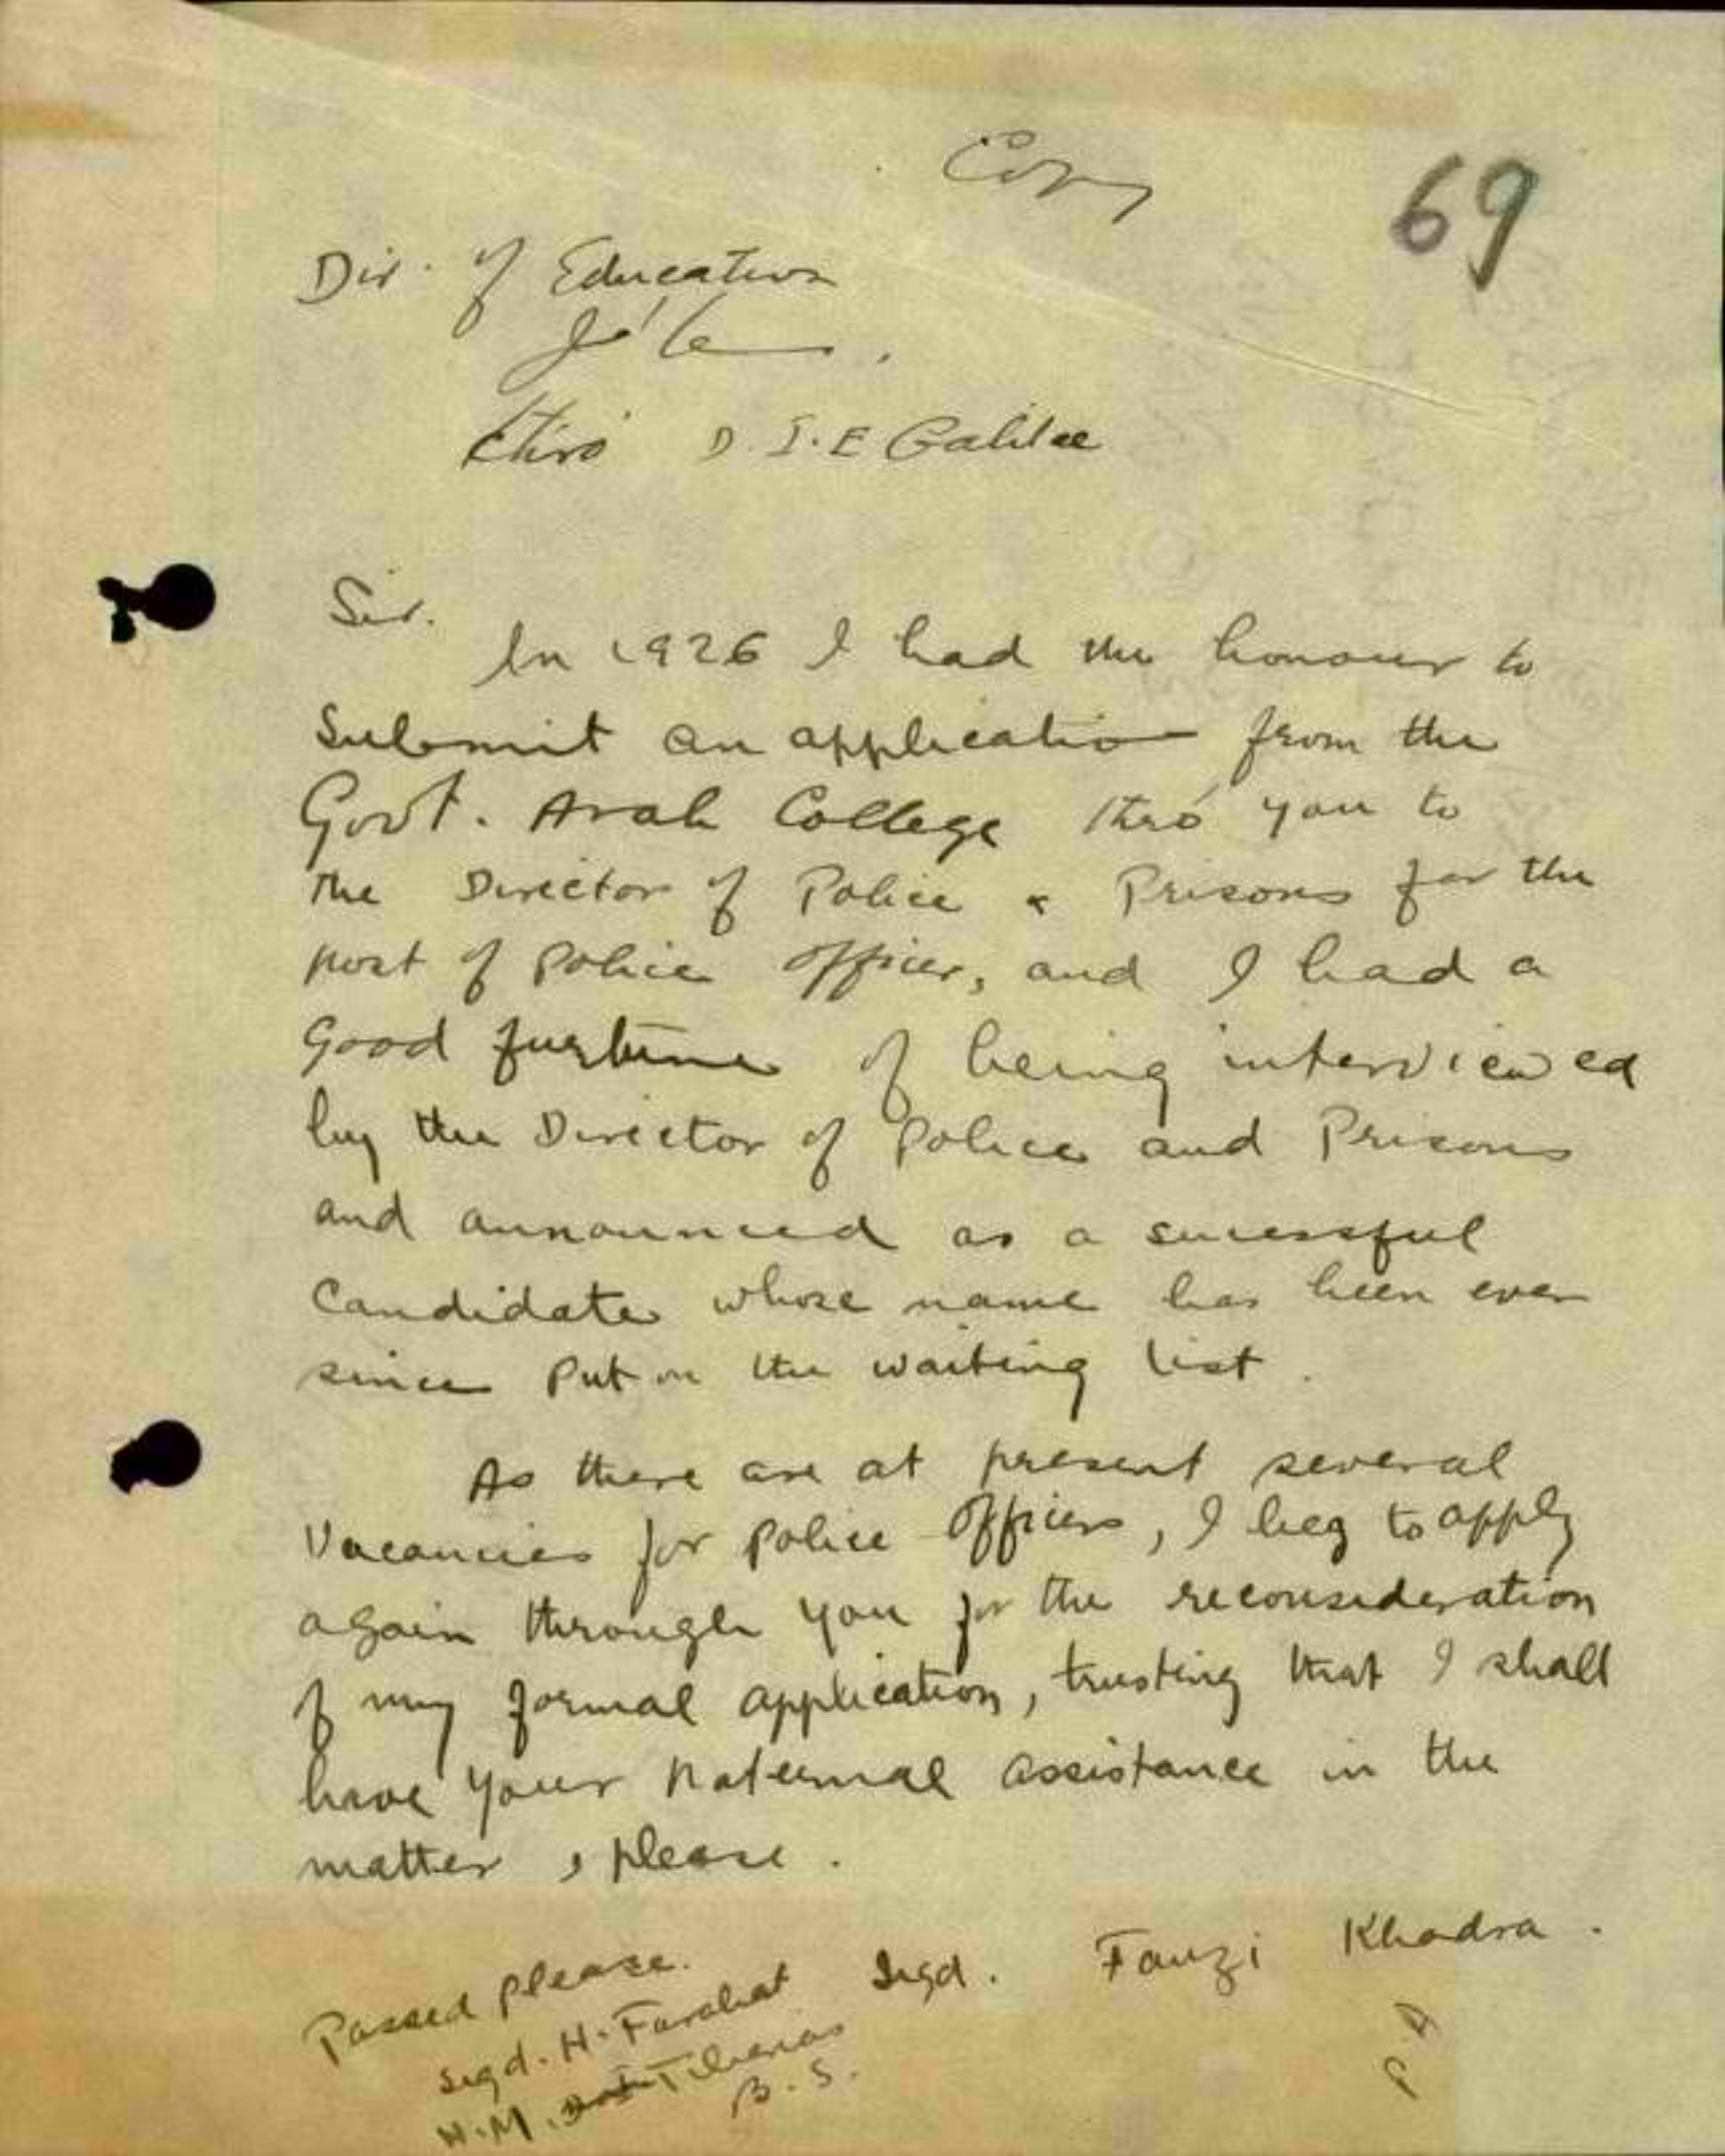 Copy
69
Dir. of Education
J'lem.
thro' D.I.E Galilee
Sir.
In 1926 I had the honour to
submit an application from the
Govt. Arab College thro' you to
the Director of Police & Prisons for the
post of Police Officer, and I had a
good furtune of being interviewed
by the Director of Police and Prisons
and announced as a sucessful
candidate whose name has been ever
since put on the waiting list.
As there are at present several
vacancies for police officers, I beg to apply
again through you for the reconsideration
of my formal application, trusting that I shall
have your paternal assistance in the
matter, please.
Sigd. Fauzi Khadra.
Passed please.
Sigd. H. Farahat
H.M. Tiberias
B.S.
P A